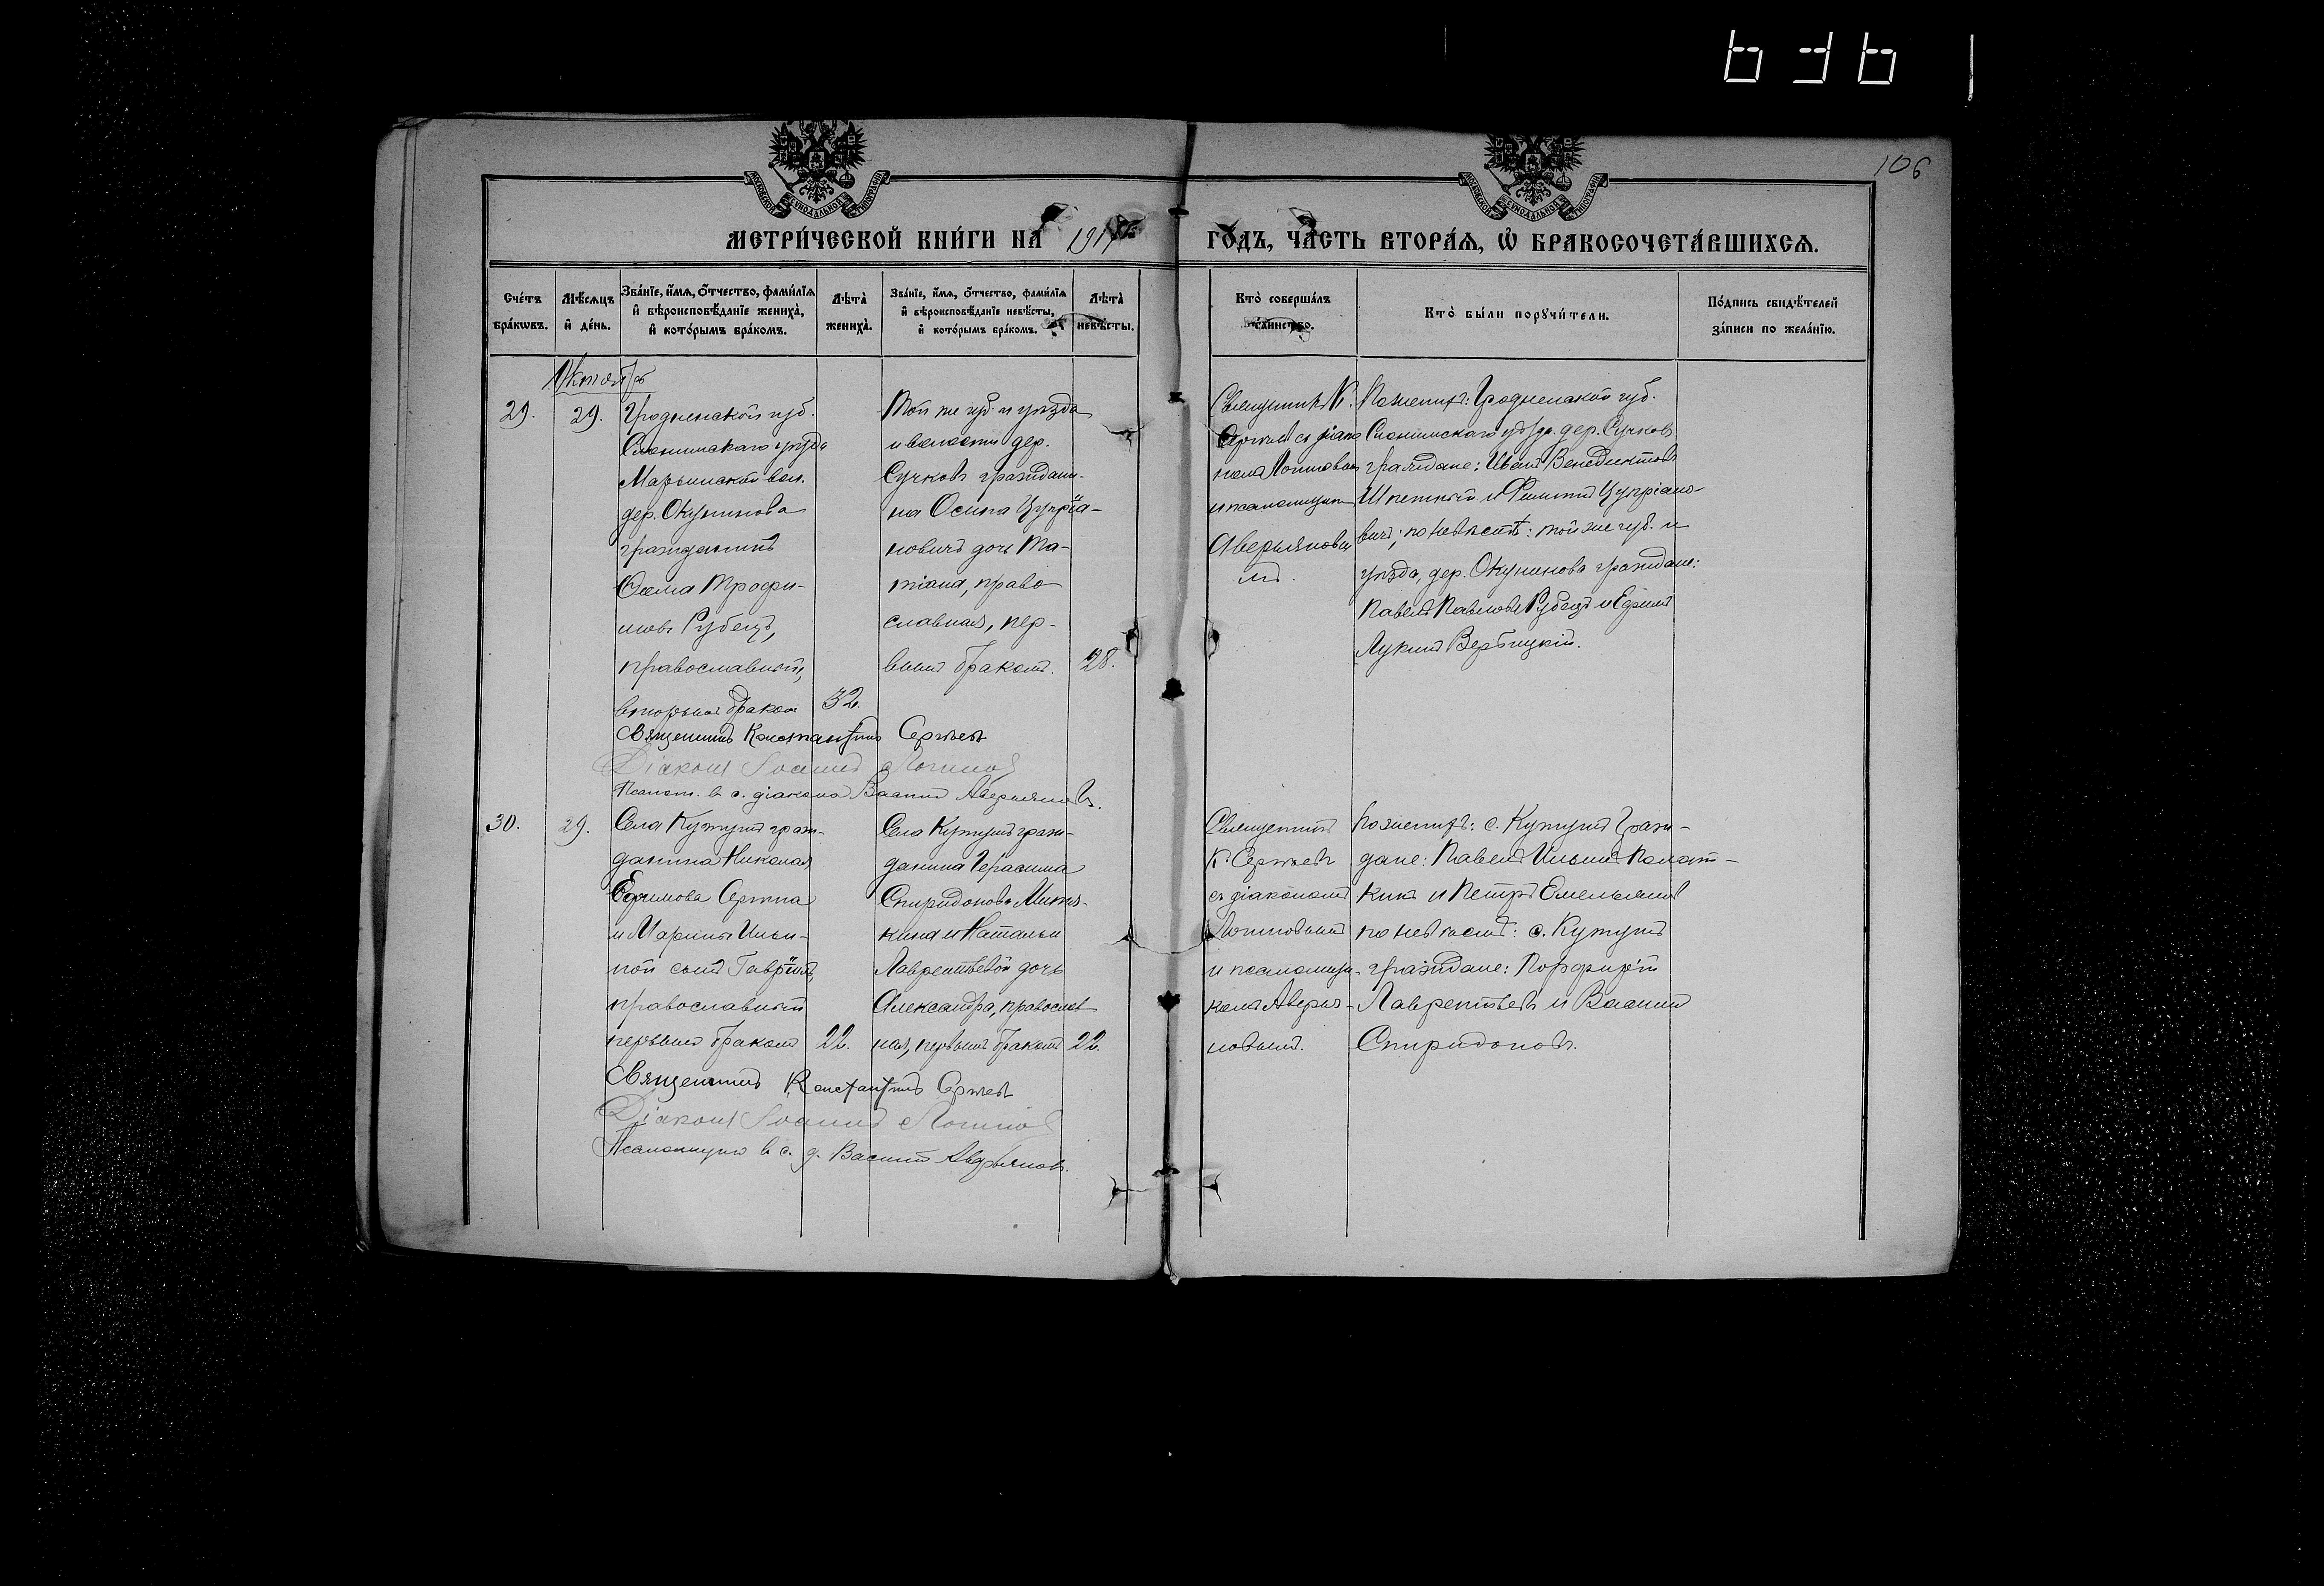 106
МЕТРИ́ЧЕСКОЙ КНИ́ГИ НА 1917 ГОДЪ, ЧАСТЬ ВТОРА́Ѧ, Ѡ БРАКОСОЧЕТА́ВШИХСѦ.
Сче́тъ бра́кѡвъ.
Мѣ́сѧцъ и де́нь.
Зва́нїе, и́мѧ, ѻ́тчество, фами́лїѧ и вѣроисповѣ́данїе жениха̀, и кото́рымъ бра́комъ.
Лѣта̀ жениха̀.
Зва́нїе, и́мѧ, ѻ́тчество, фами́лїѧ и вѣроисповѣ́данїе невѣ́сты, и кото́рымъ бра́комъ.
Лѣта̀ невѣ́сты.
Кто̀ соверша́лъ та́инство.
Кто̀ бы́ли порꙋчи́тели.
По́дпись свидѣ́телей за́писи по жела́нїю.
Октябрь
29.
29.
Гродненской губ.
Слонимскаго уѣзда
Марьинской вол.
дер. Окунинова
гражданинъ
Ѳома Трофи-
мовъ Рубецъ,
православный,
вторымъ бракомъ
32.
Той же губ. и уѣзда
и волости дер.
Сучковъ граждани-
на Осипа Цупрiа-
новичъ дочь Та-
тiана, право-
славная, пер-
вымъ бракомъ.
28.
Священникъ К.
Сергѣевъ съ дiако-
номъ Логиновымъ
и псаломщик
Аверьяновы
мъ.
По женихѣ: Гродненской губ.
Слонимскаго уѣзда дер. Сучковъ
граждане: Иванъ Венедиктовъ
и Филиппъ Цупрiано-
вичъ; по невѣстѣ: той же губ. и
уѣзда, дер. Окунинова граждане:
Павелъ Павловъ Рубецъ и Ефимъ
Лукинъ Вербицкiй.
Священникъ Константинъ Сергѣевъ
Дiаконъ Iоаннъ Логиновъ
Псалом. в с. дiакона Василiй Аверьяновъ.
30.
29.
Села Кутушъ граж-
данина Николая
Ефимова Сергина
и Марины Ильи-
ной сынъ Гаврiилъ,
православный
первымъ бракомъ
22.
Села Кутушъ граж-
данина Герасима
Спиридонова
и Натальи
Лаврентьевой дочь
Александра, православ-
ная, первымъ бракомъ
22.
Священникъ
К. Сергѣевъ
съ дiакономъ
Логиновымъ
и псаломщи-
комъ Аверья-
новымъ.
По женихѣ: с. Кутушъ граж-
дане: Павелъ Ильинъ
и Петръ Емельяновъ
по невѣстѣ: с. Кутушъ
граждане: Порфирiй
Лаврентьевъ и Василiй
Спиридоновъ.
Священникъ Константинъ Сергѣевъ
Дiаконъ Iоаннъ Логиновъ
Псаломщикъ в с. д. Василiй Аверьяновъ.